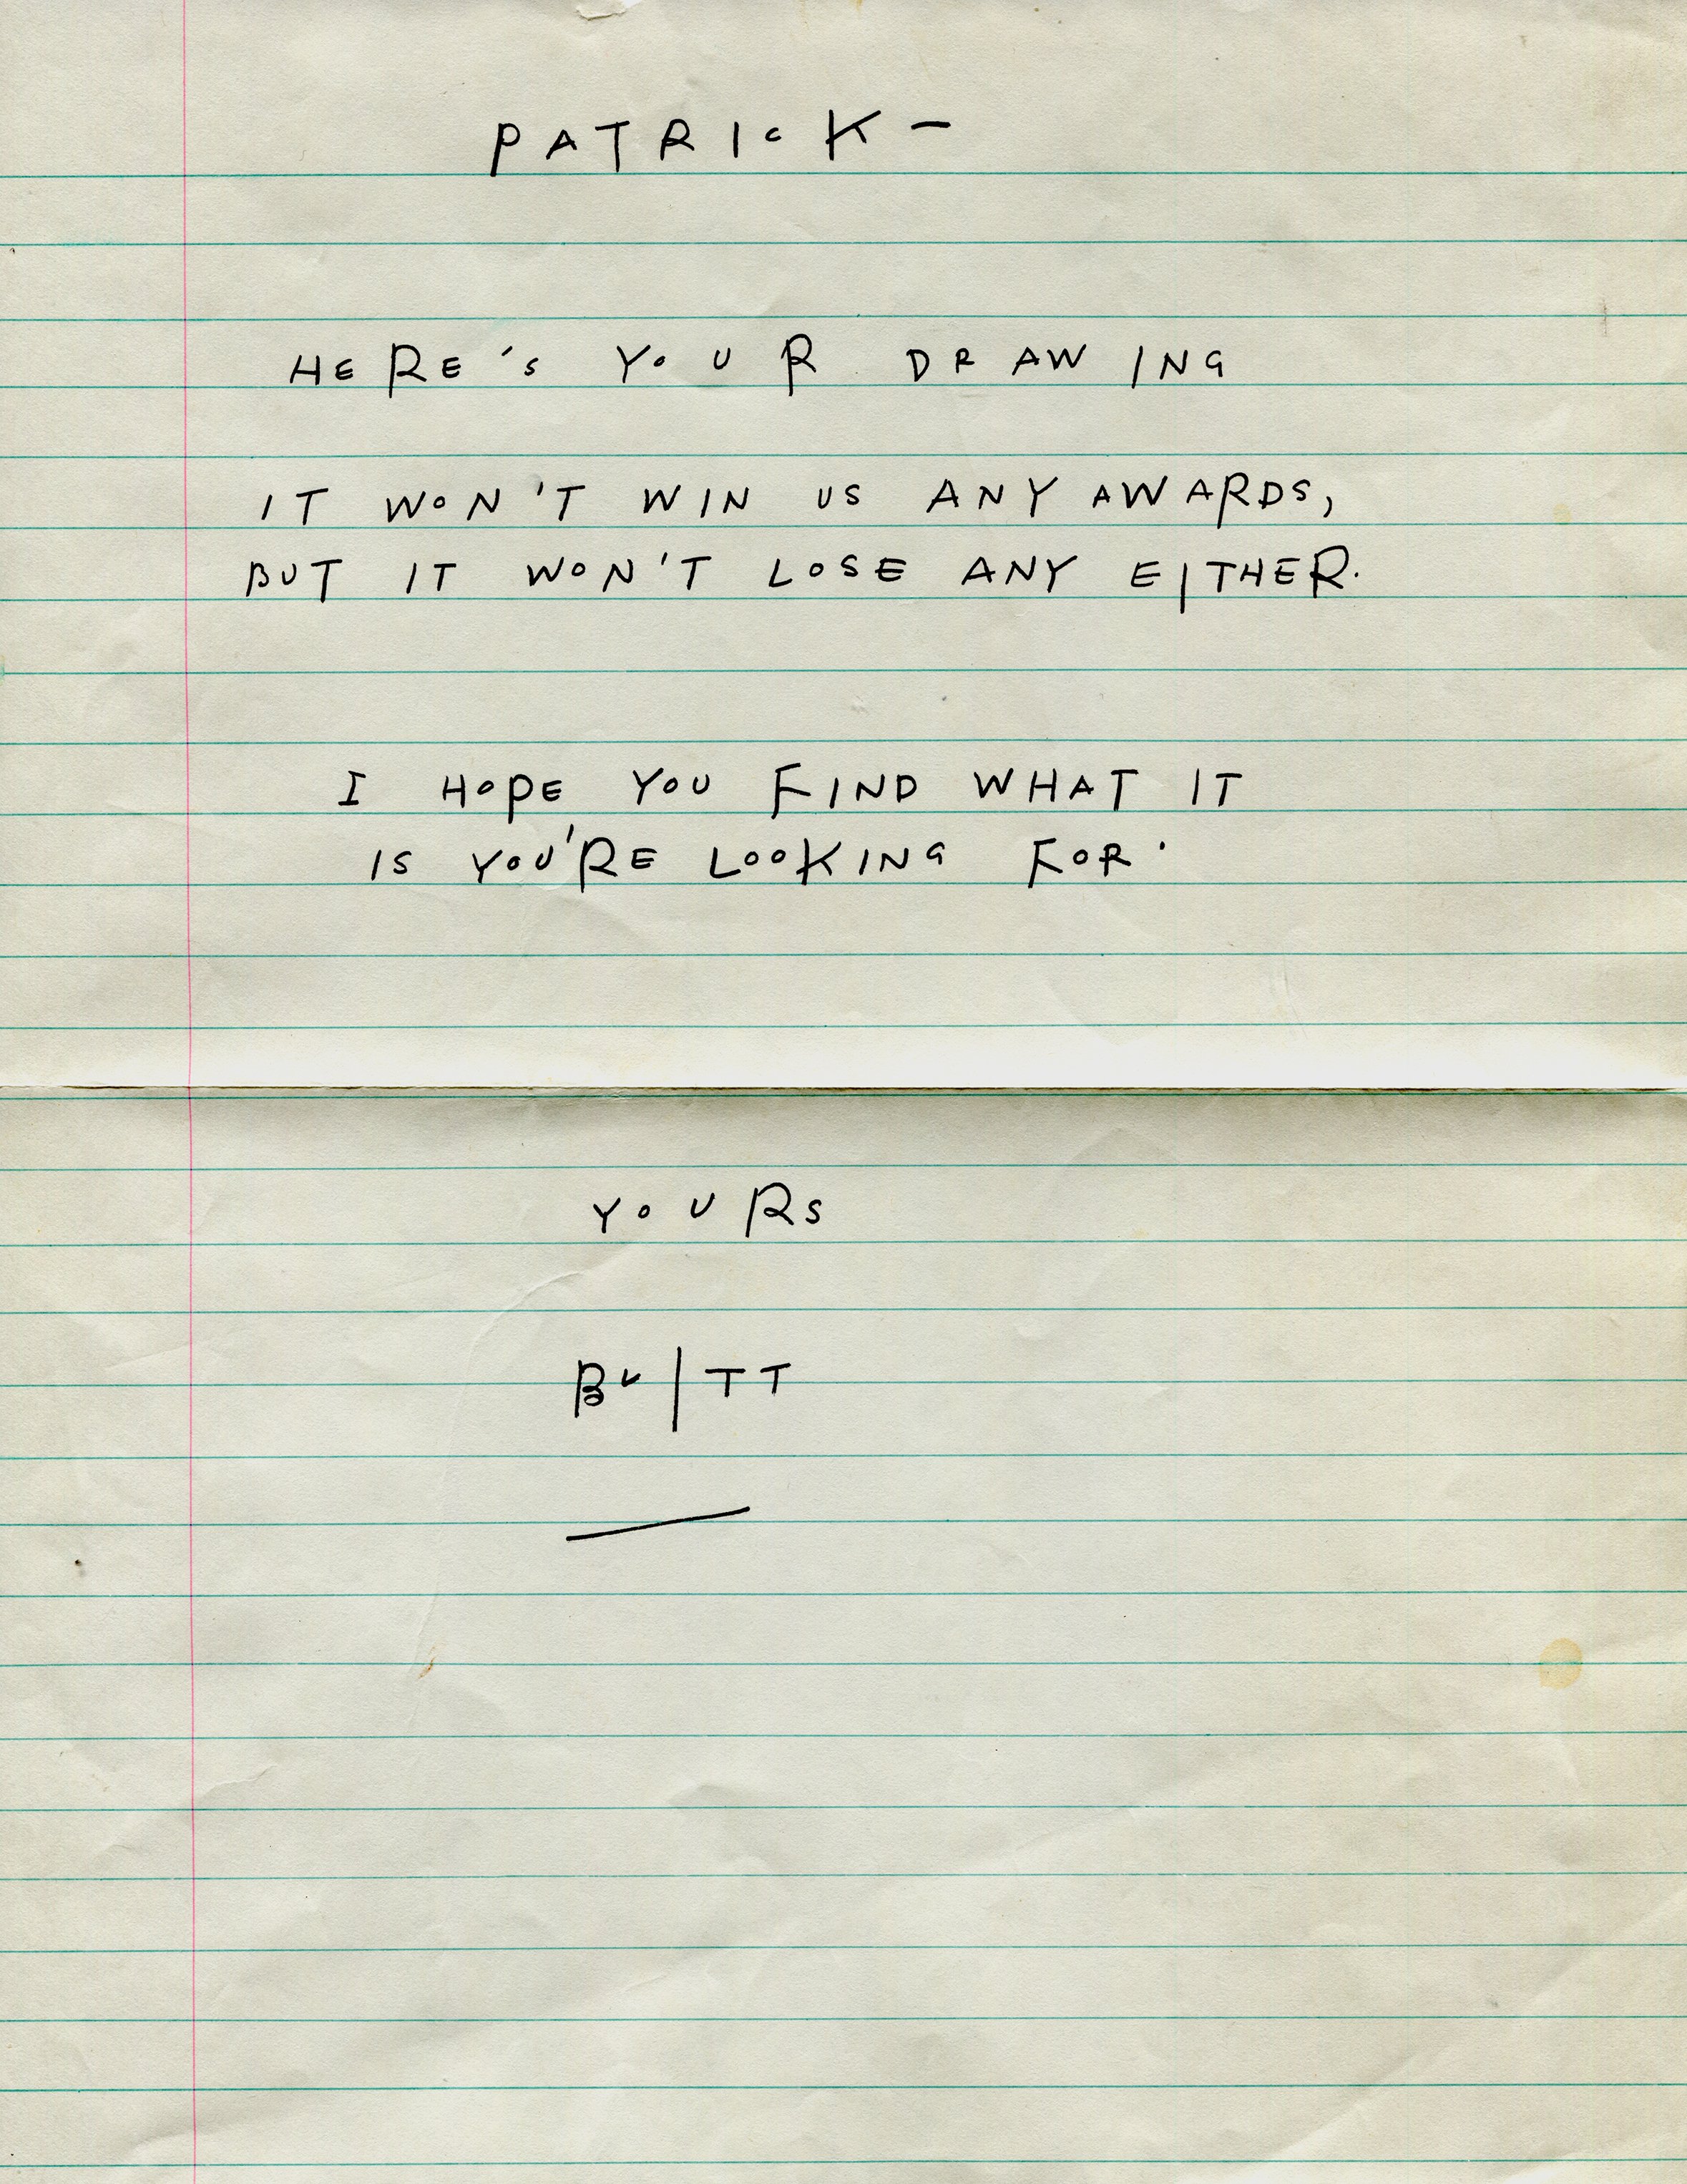 PATRICK -
HERE'S YOUR DRAWING
IT WON'T WIN US ANY AWARDS,
BUT IT WON'T LOSE ANY EITHER.
I HOPE YOU FIND WHAT IT
IS YOU'RE LOOKING FOR.
YOURS